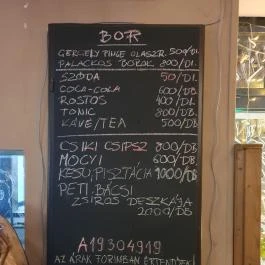 BOR
GERGELY PINCE OLASZR. 500/DL.
PALACKOS BOROK 800/DL.
SZÓDA 50/DL.
COCA-COLA 600/DB
ROSTOS 400/DL.
TONIC 800/DB
KÁVÉ/TEA 500/DB
CSIKI CSIPSZ 800/DB
MOGYI 600/DB.
KESU, PISZTÁCIA 1000/DB
PETI BÁCSI
ZSIROS DESZKÁJA
2000/DB.
A19304919
AZ ÁRAK FORINTBAN ÉRTENDŐEK